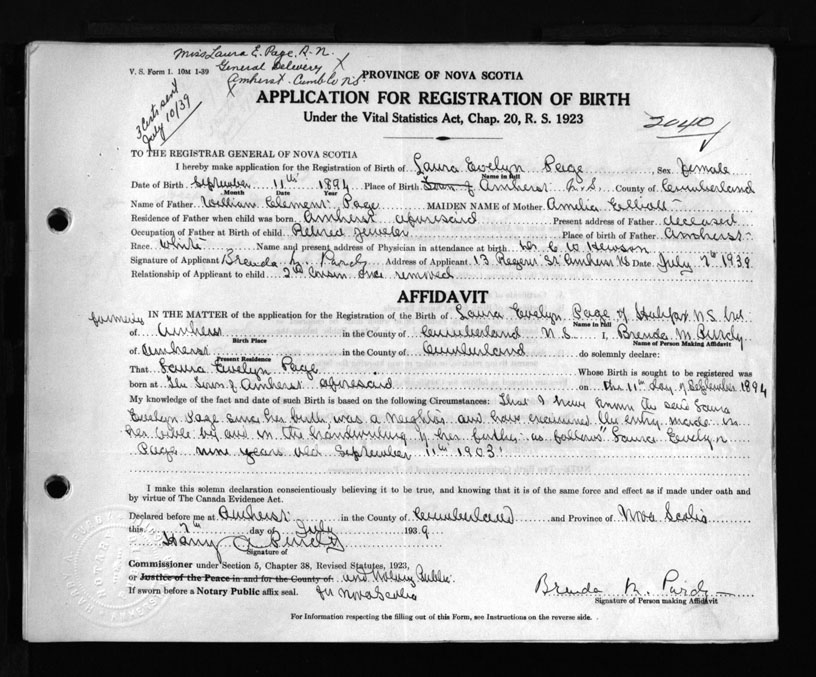 Miss Laura E. Page, R.N.
General Delivery X
V. S. Form 1. 10M 1-39
Amherst. Cumb Co N.S.
X
PROVINCE OF NOVA SCOTIA
APPLICATION FOR REGISTRATION OF BIRTH
Under the Vital Statistics Act, Chap. 20, R. S. 1923
3 Certs sent
July 10/39
2040
TO THE REGISTRAR GENERAL OF NOVA SCOTIA
I hereby make application for the Registration of Birth of Laura Evelyn Page Sex Female
Name in full
Date of Birth September 11th 1894 Place of Birth Town of Amherst N.S. County of Cumberland
Month Date Year
Name of Father William Clement Page MAIDEN NAME of Mother Amelia Elliott
Residence of Father when child was born Amherst aforesaid Present address of Father deceased
Occupation of Father at Birth of child Retired Jeweler Place of birth of Father Amherst
Race White Name and present address of Physician in attendance at birth Dr C W Hewson
Signature of Applicant Brenda M. Purdy Address of Applicant 13 Regent St Amherst NS Date July 7th 1939
Relationship of Applicant to child 2nd Cousin once removed
AFFIDAVIT
IN THE MATTER of the application for the Registration of the Birth of Laura Evelyn Page of Halifax N.S. but
Name in Full
formerly
of Amherst in the County of Cumberland N S I, Brenda M. Purdy
Birth Place Name of Person Making Affidavit
of Amherst in the County of Cumberland do solemnly declare:
Present Residence
That Laura Evelyn Page Whose Birth is sought to be registered was
born at The Town of Amherst aforesaid on the 11th day of September 1894
My knowledge of the fact and date of such Birth is based on the following Circumstances: That I have known the said Laura
Evelyn Page since her birth, was a neighbor and have examined the entry made in
her bible by and in the handwriting of her father as follows "Laura Evelyn
Page nine years old September 11th 1903"
I make this solemn declaration conscientiously believing it to be true, and knowing that it is of the same force and effect as if made under oath and
by virtue of The Canada Evidence Act.
Declared before me at Amherst in the County of Cumberland and Province of Nova Scotia
this 7th day of July 1939
Harry A Purdy
Signature of
Commissioner under Section 5, Chapter 38, Revised Statutes, 1923,
or Justice of the Peace in and for the County of: and Notary Public
If sworn before a Notary Public affix seal. In Nova Scotia
Brenda M. Purdy
Signature of Person making Affidavit
For Information respecting the filling out of this Form, see Instructions on the reverse side.